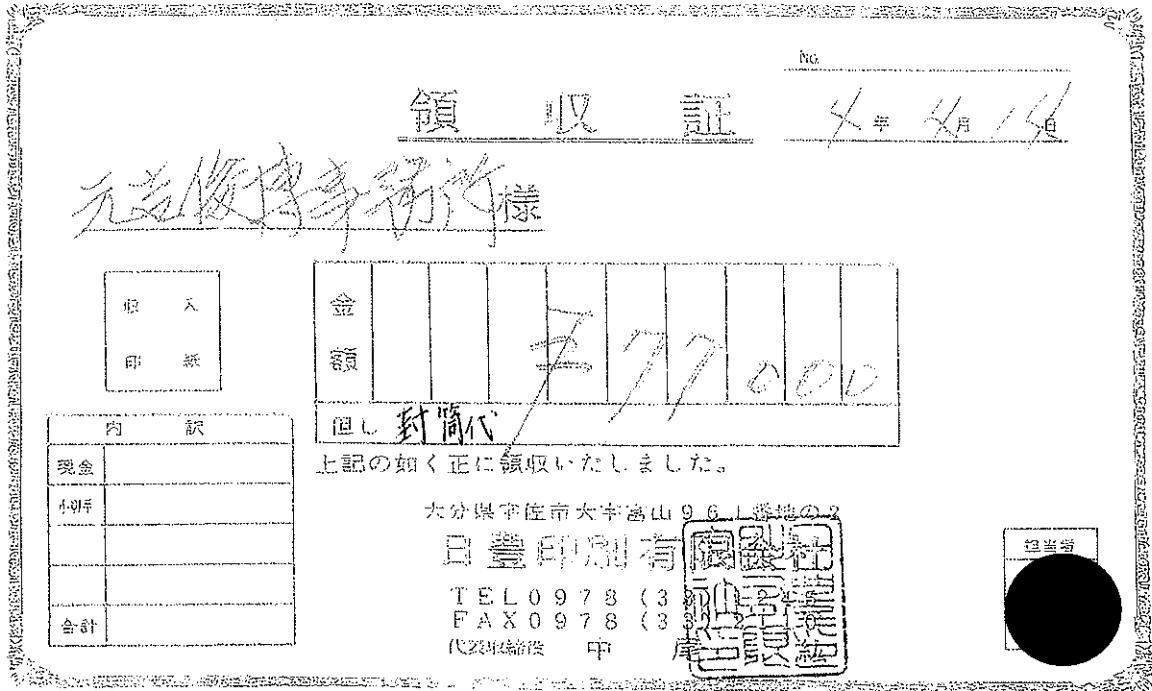 No.
領収証
4年 4月 15日
元吉俊博事務所様
収入
印紙
金額 ¥77000
但し 封筒代
上記の如く正に領収いたしました。
内訳
現金
小切手
合計
大分県宇佐市大字富山961番地の2
日豊印刷有限会社
TEL0978(3
FAX0978(3
代表取締役 中尾
担当者